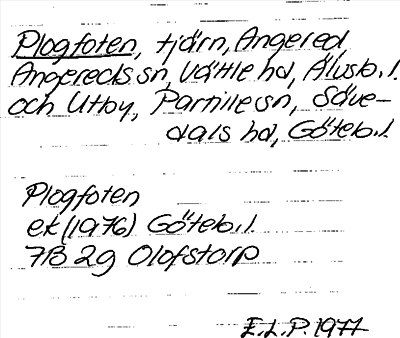 Plogfoten, tjärn, Angered,
Angereds sn, Vättle hd, Älvsb.l.
och Utby, Partille sn, Säve-
dals hd, Göteb.l.
Plogfoten
ek (1976) Göteb.l.
7B 2g Olofstorp
E.L.P. 1977